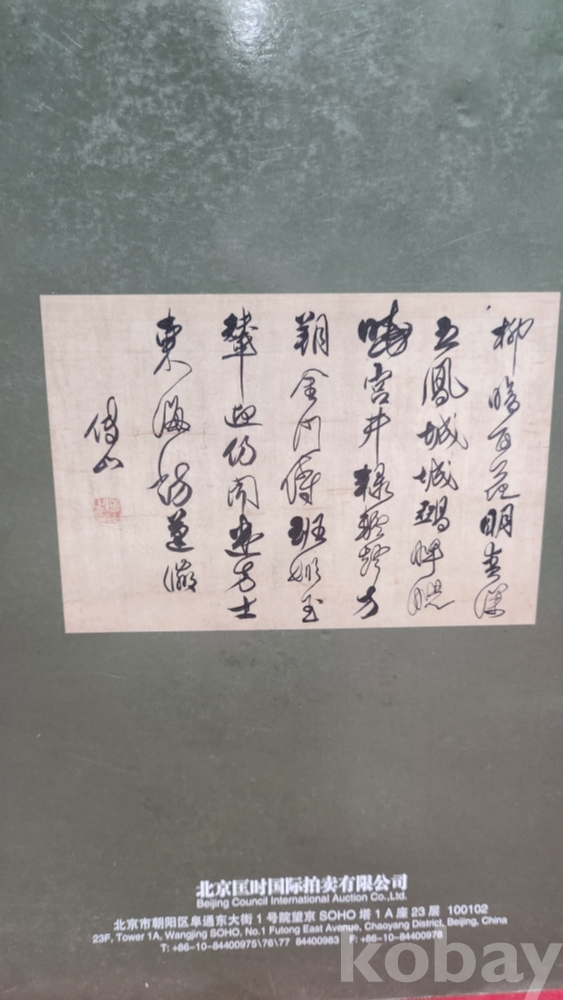 柳暗百花明春深
五鳳城城鵶睥睨
曉宮井轆轤聲方
朔金門侍班姬玉
輦迎仍聞遣方士
東海訪蓬瀛
傅山
北京匡时国际拍卖有限公司
Beijing Council International Auction Co.,Ltd.
北京市朝阳区阜通东大街1号院望京SOHO塔1A座23层 100102
23F, Tower 1A, Wangjing SOHO, No.1 Futong East Avenue, Chaoyang District, Beijing, China
T: +86-10-84400975\76\77 84400983 F: +86-10-84400978
kobay